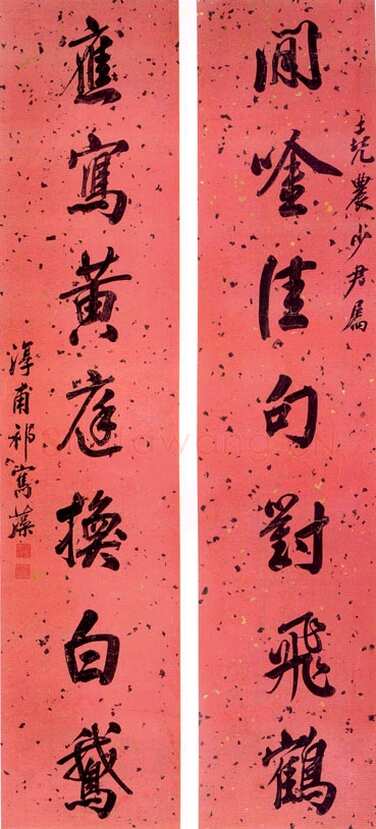 堯農少君屬
閒唫佳句對飛鶴
應寫黃庭換白鵝
淳甫祁寯藻